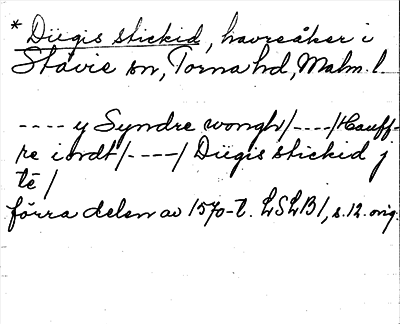 * Dügis stickid, havreåker i
Stävie sn, Torna hd, Malm. l
---- y Syndre wongh/----/Hauff-
re iordt/----/ Dügis stickid j
tē/
förra delen av 1570-t. LSLB1, s. 12. orig.